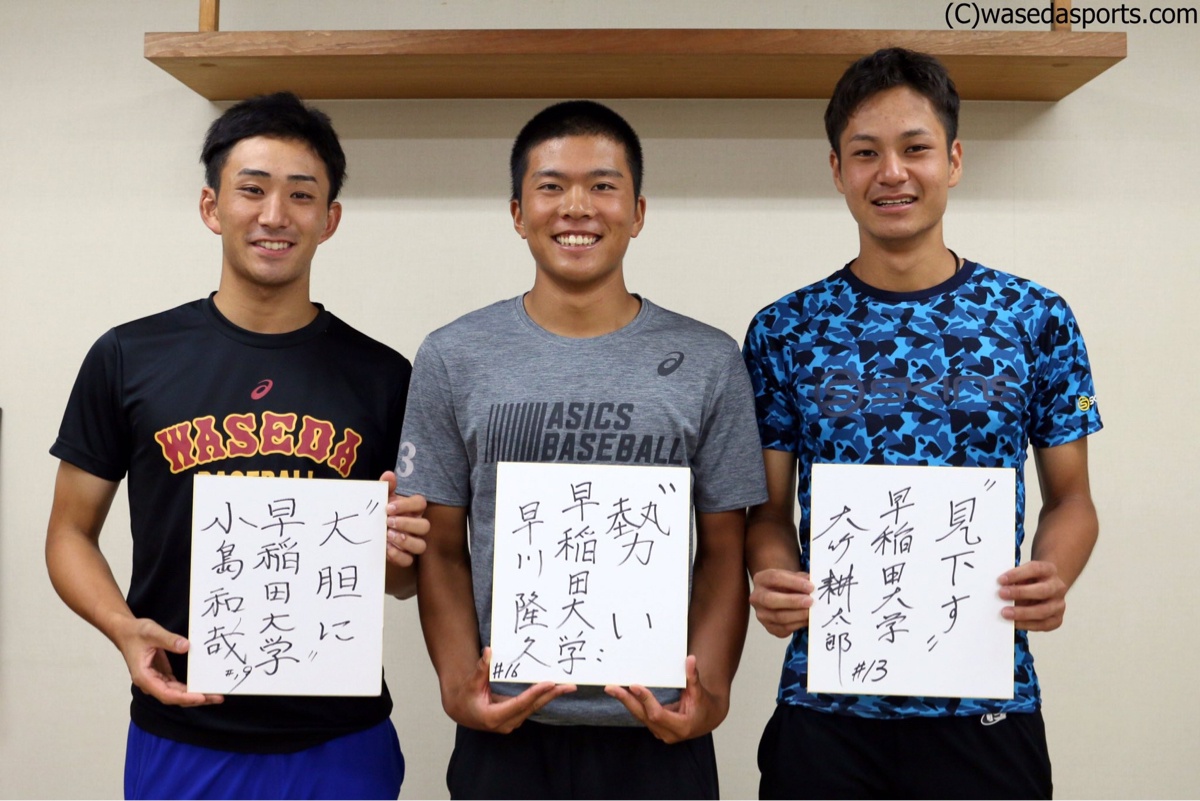 (C)wasedasports.com
WASEDA
BASEBALL
"大胆に
早稲田大学"
小島和哉
#19
3
ASICS
BASEBALL
"勢い
早稲田大学"
早川隆久
#16
SKINS
"見下す"
早稲田大学
大竹耕太郎
#13